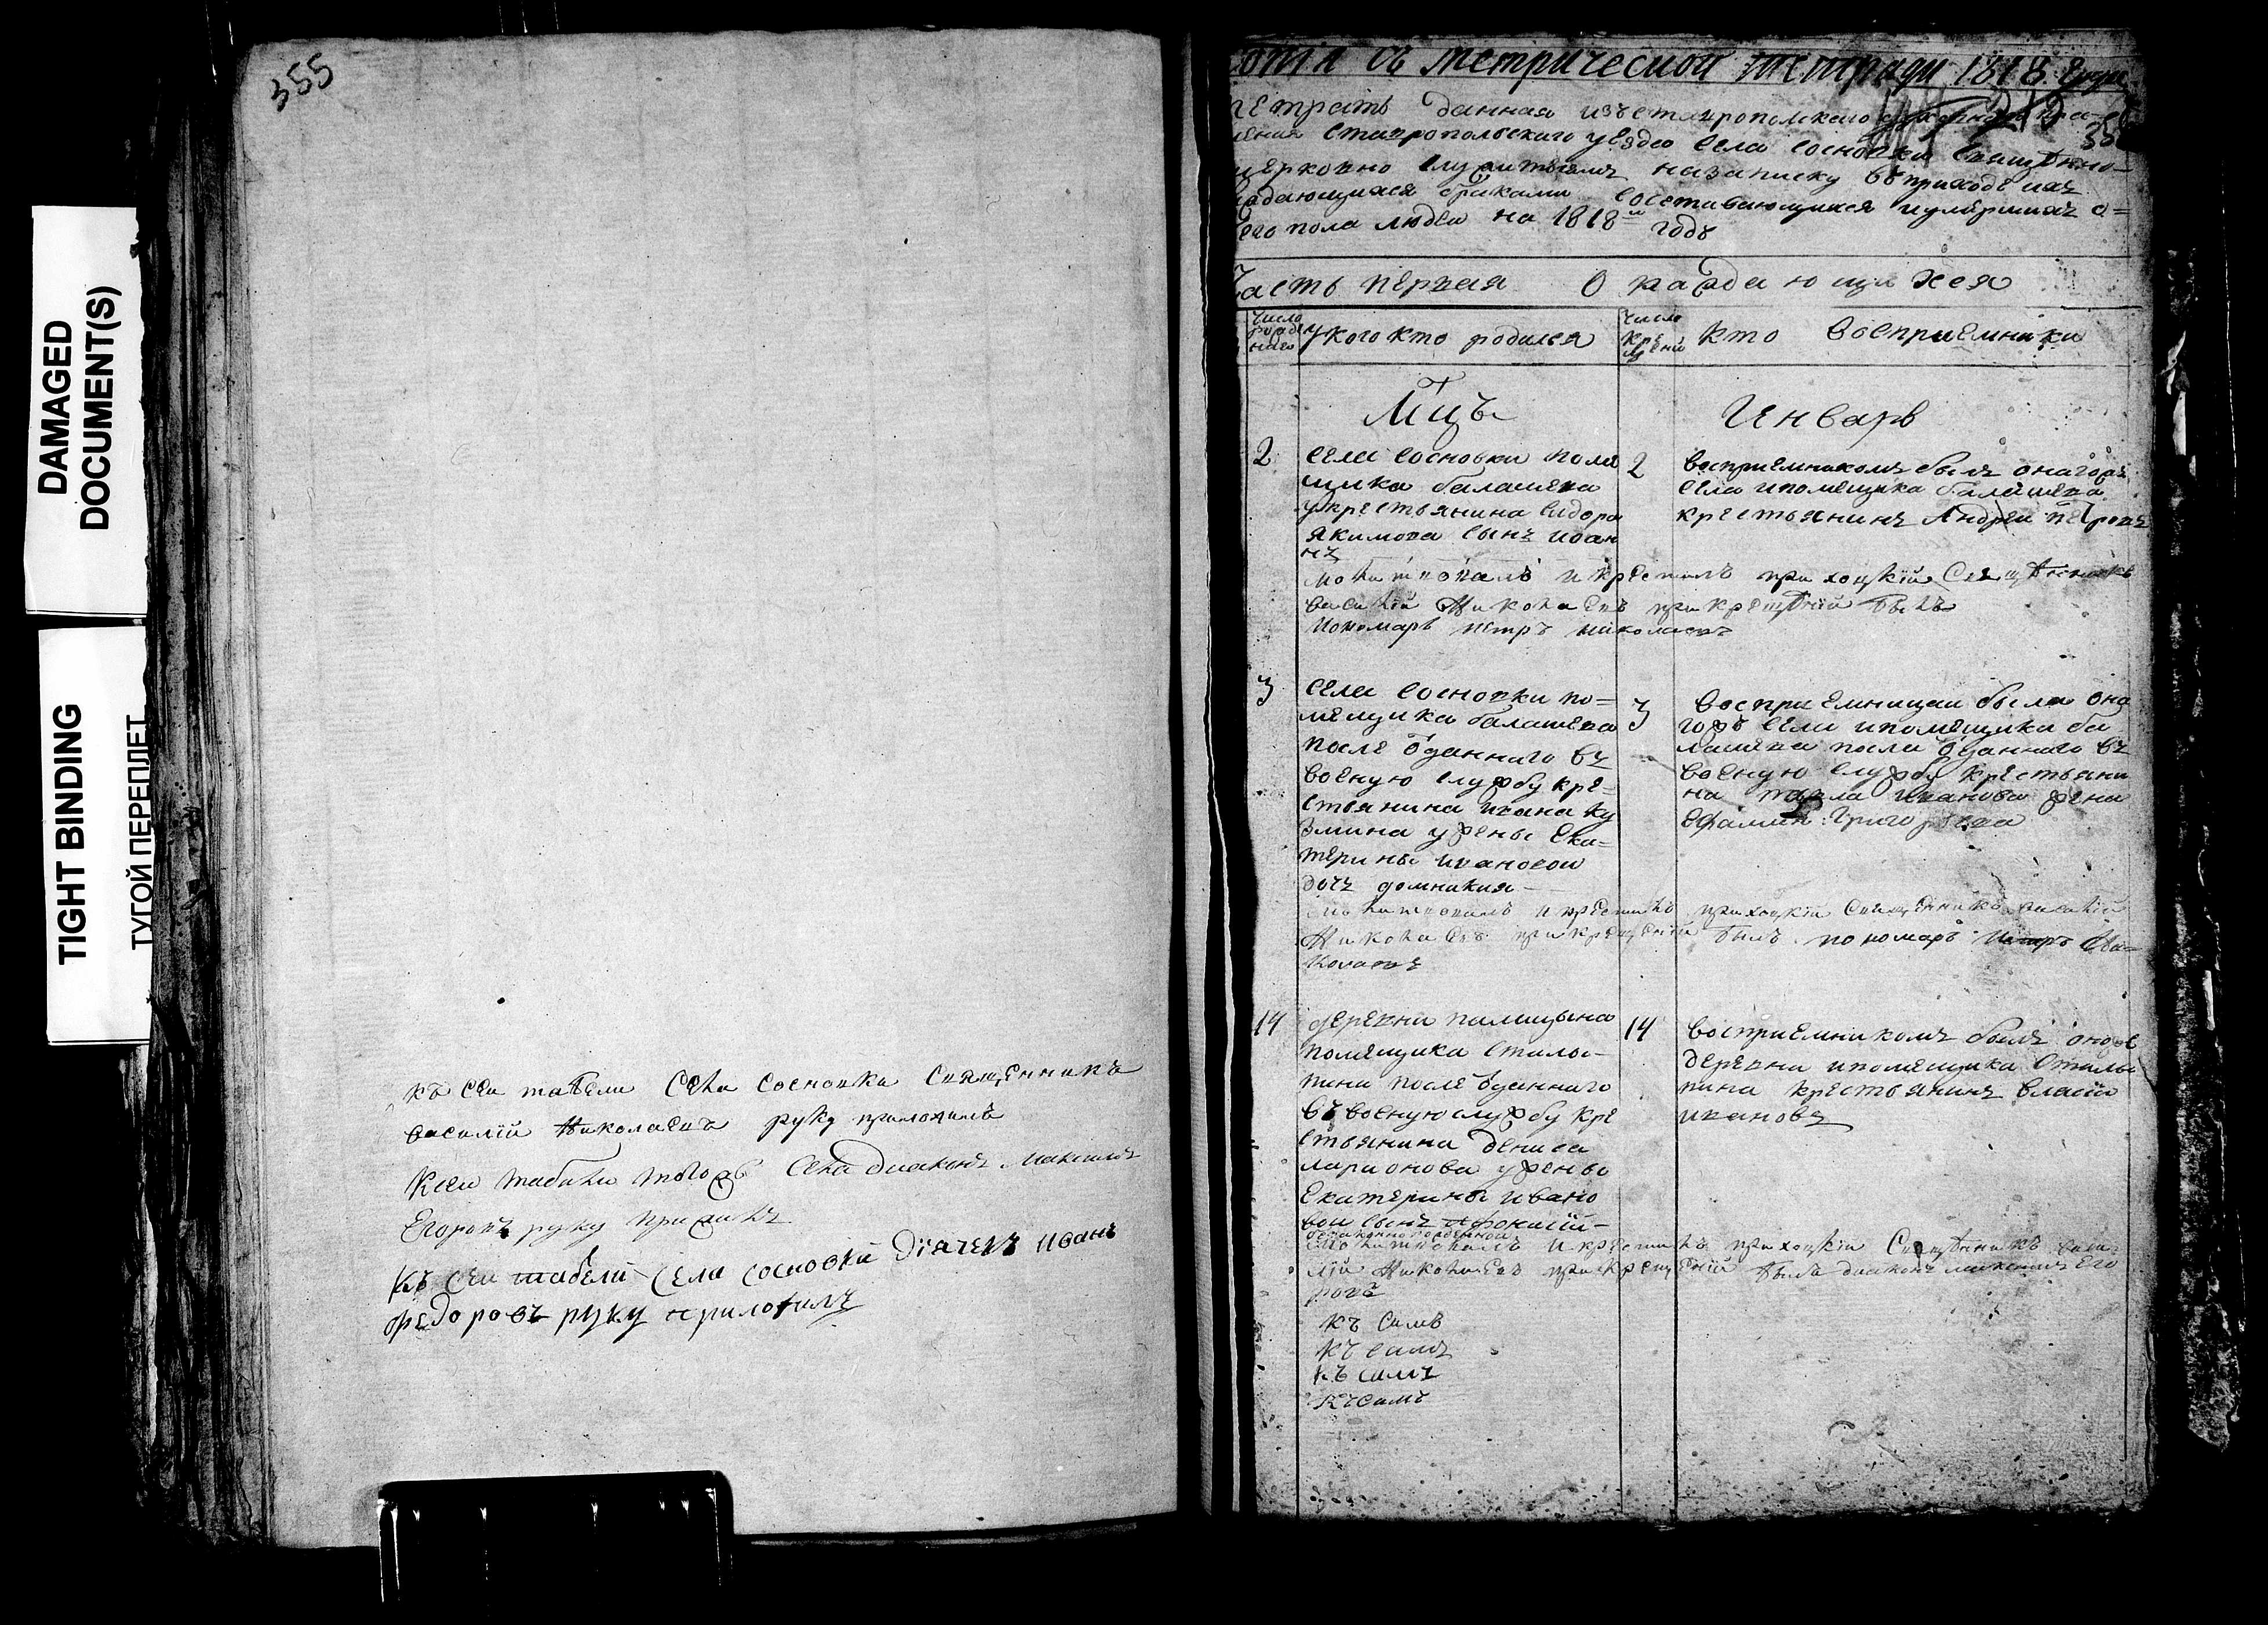 355
DAMAGED
DOCUMENT(S)
TIGHT BINDING
ТУГОЙ ПЕРЕПЛЕТ
къ сеи табели села сосновки священникъ
василій Николаевъ руку приложилъ
Ксеи табели тогожъ села диаконъ Максимъ
Егоровъ руку приложилъ
къ сеи табели села сосновки дьячекъ иванъ
федоровъ руку приложилъ
опія съ метрической тетради 1818 Году
тетрать данная изъ ставропольского духовнаго пра
ления ставропольскаго уездо села сосновки священно-
церковно служителямъ на записку въ приходе ихъ
раждающихся браками сочетавающихся и умершихъ о=
его пола людеи на 1818 годъ
Часть первая О раждающихся
число рожденаго
у кого кто родился
число крещения
кто восприемники
Мцъ Иенварь
2
села сосновки поме
щика балашева
у крестьянина сидора
якимова сынъ иван
нъ
2
восприемникомъ былъ оногожъ
села и помещика балашева
крестьянинъ Андреи петровъ
молитвовалъ и крестилъ прихоцкій Священникъ
василій Николаевъ при крещеніи былъ
пономарь петръ николаевъ
3
села сосновки по=
мещика балашева
после отданнаго въ
военую службу кре=
стьянина ивана ку
змина у жены ека=
терины ивановои
дочь домникия
3
восприемницаи была оно
гожъ села и помещика ба
лашева после отданнаго въ
военую службу крестьяни
на павла иванова жена
Григорьева
молитвовалъ и крестилъ прихоцкіи Священникъ василій
Николаевъ при крещеніи былъ пономарь петръ Ни=
колаевъ
14
деревни палицына
помещика столы-
пина после отданнаго
въ военую службу кре
стьянина дениса
ларионова у жены
екатерины ивано
вои сынъ афонасій
14
восприемникомъ былъ оноже
деревни и помещика столы
пина крестьянинъ власіи
ивановъ
молитвовалъ и крестилъ прихоцкіи Священникъ васи
лій Николаевъ при крещеніи былъ диаконъ максимъ Его
ровъ
къ симъ
къ симъ
къ симъ
къ симъ